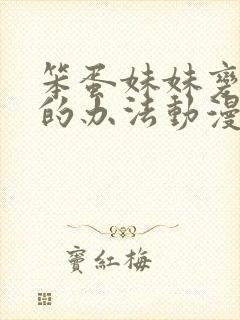 笨蛋妹妹
的办法動漫
竇紅梅